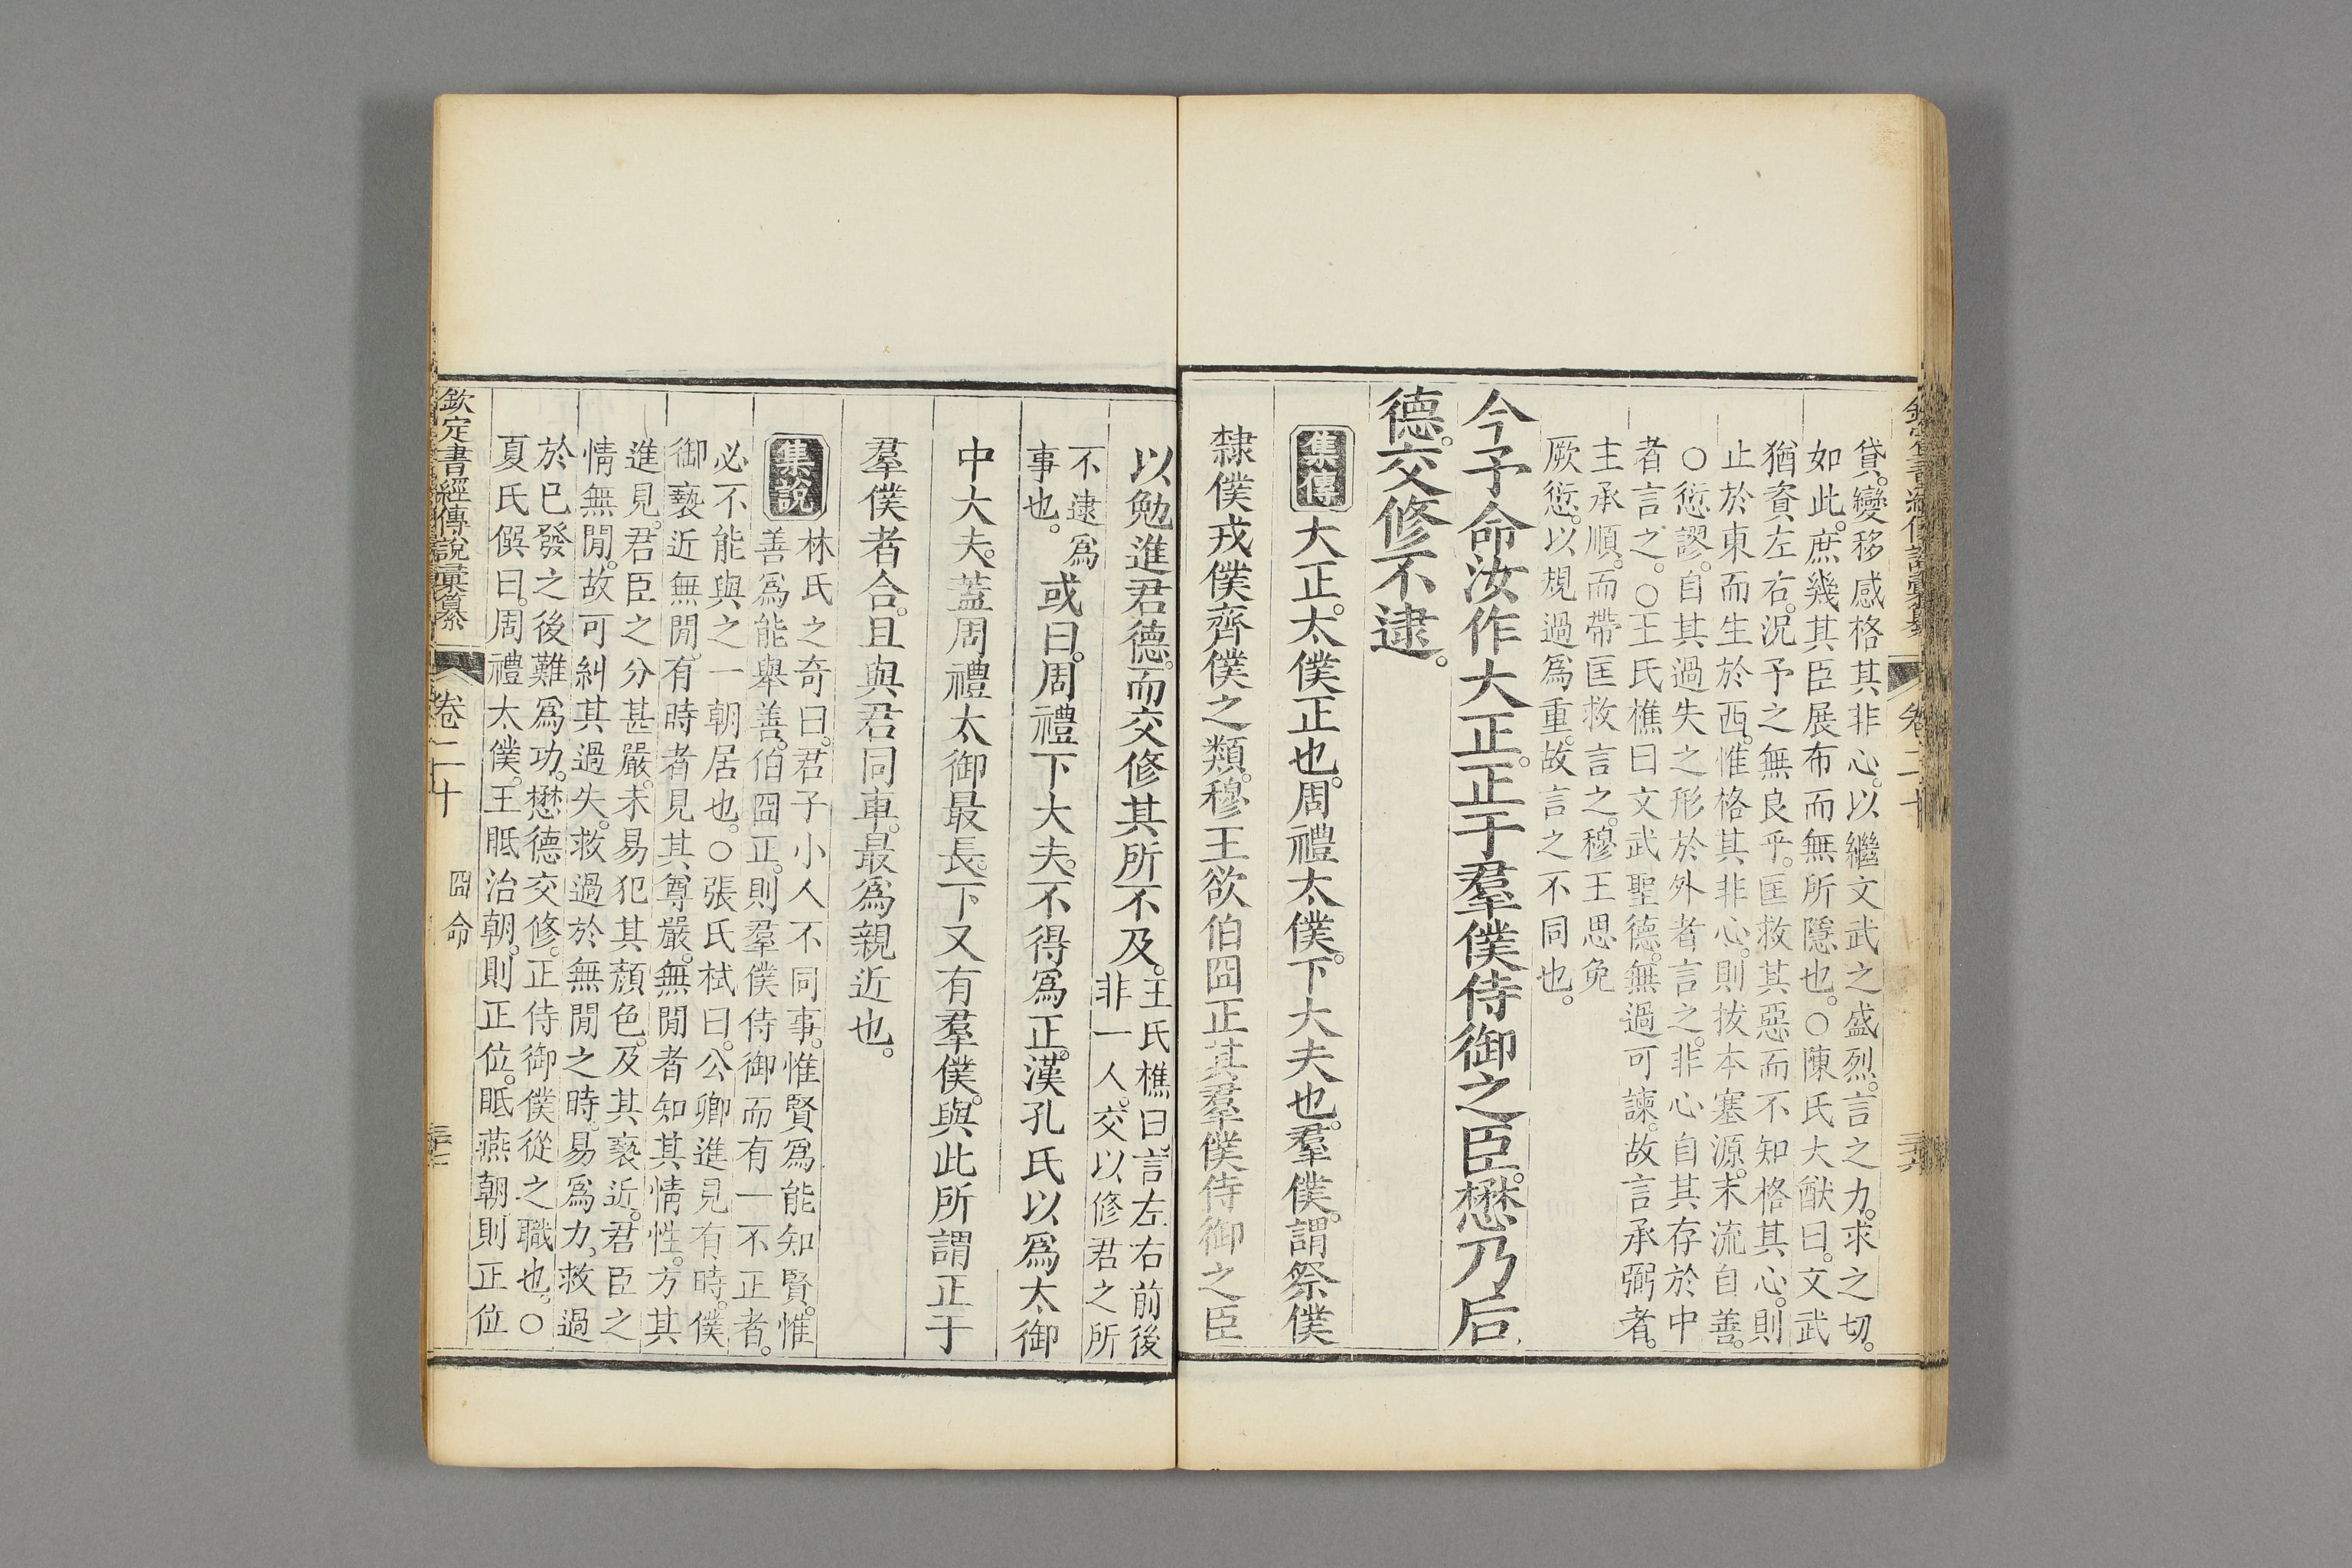 貸。變移感格其非心。以繼文武之盛烈。言之力。求之切。
如此。庶幾其臣展布而無所隱也。○陳氏大猷曰。文武
猶資左右。況予之無良乎。匡救其惡而不知格其心。則
止於東而生於西。惟格其非心。則拔本塞源。末流自善。
○愆謬。自其過失之形於外者言之。非心自其存於中
者言之。○王氏樵曰文武聖德。無過可諫。故言承弼者。
主承順。而帶匡救言之。穆王思免
厥愆。以規過爲重。故言之不同也。
今予命汝作大正。正于羣僕侍御之臣。懋乃后
德。交修不逮。
集傳 大正。太僕正也。周禮太僕。下大夫也。羣僕。謂祭僕
隸僕戎僕齊僕之類。穆王欲伯冏正其羣僕侍御之臣
卷二十
三十六
以勉進君德。而交修其所不及。王氏樵曰。言左右前後
非一人。交以修君之所
不逮爲
事也。
或曰。周禮下大夫。不得爲正。漢孔氏以爲太御
中大夫。蓋周禮太御最長。下又有羣僕。與此所謂正于
羣僕者合。且與君同車。最爲親近也。
集說 林氏之奇曰。君子小人不同事。惟賢爲能知賢。惟
善爲能舉善。伯冏正。則羣僕侍御而有一不正者。
必不能與之一朝居也。○張氏栻曰。公卿進見有時。僕
御褻近無閒。有時者見其尊嚴。無閒者知其情性。方其
進見。君臣之分甚嚴。未易犯其顏色。及其褻近。君臣之
情無閒。故可糾其過失。救過於無閒之時。易爲力。救過
於已發之後難爲功。懋德交修。正侍御僕從之職也。○
夏氏僎曰。周禮太僕。王眡治朝。則正位。眡燕朝則正位
欽定書經傳說彙纂
卷二十
冏命
三十七